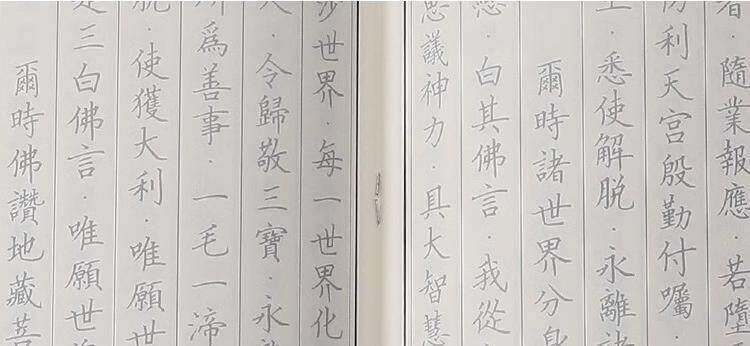 者·隨業報應·若墮
利天宮殷勤付囑·
·悉使解脫·永離諸
爾時諸世界分身
戀·白其佛言·我從
思議神力·具大智慧
沙世界·每一世界化
·令歸敬三寶·永
爲善事·一毛一渧
脫·使獲大利·唯願世
三白佛言·唯願世
爾時佛讚地藏菩